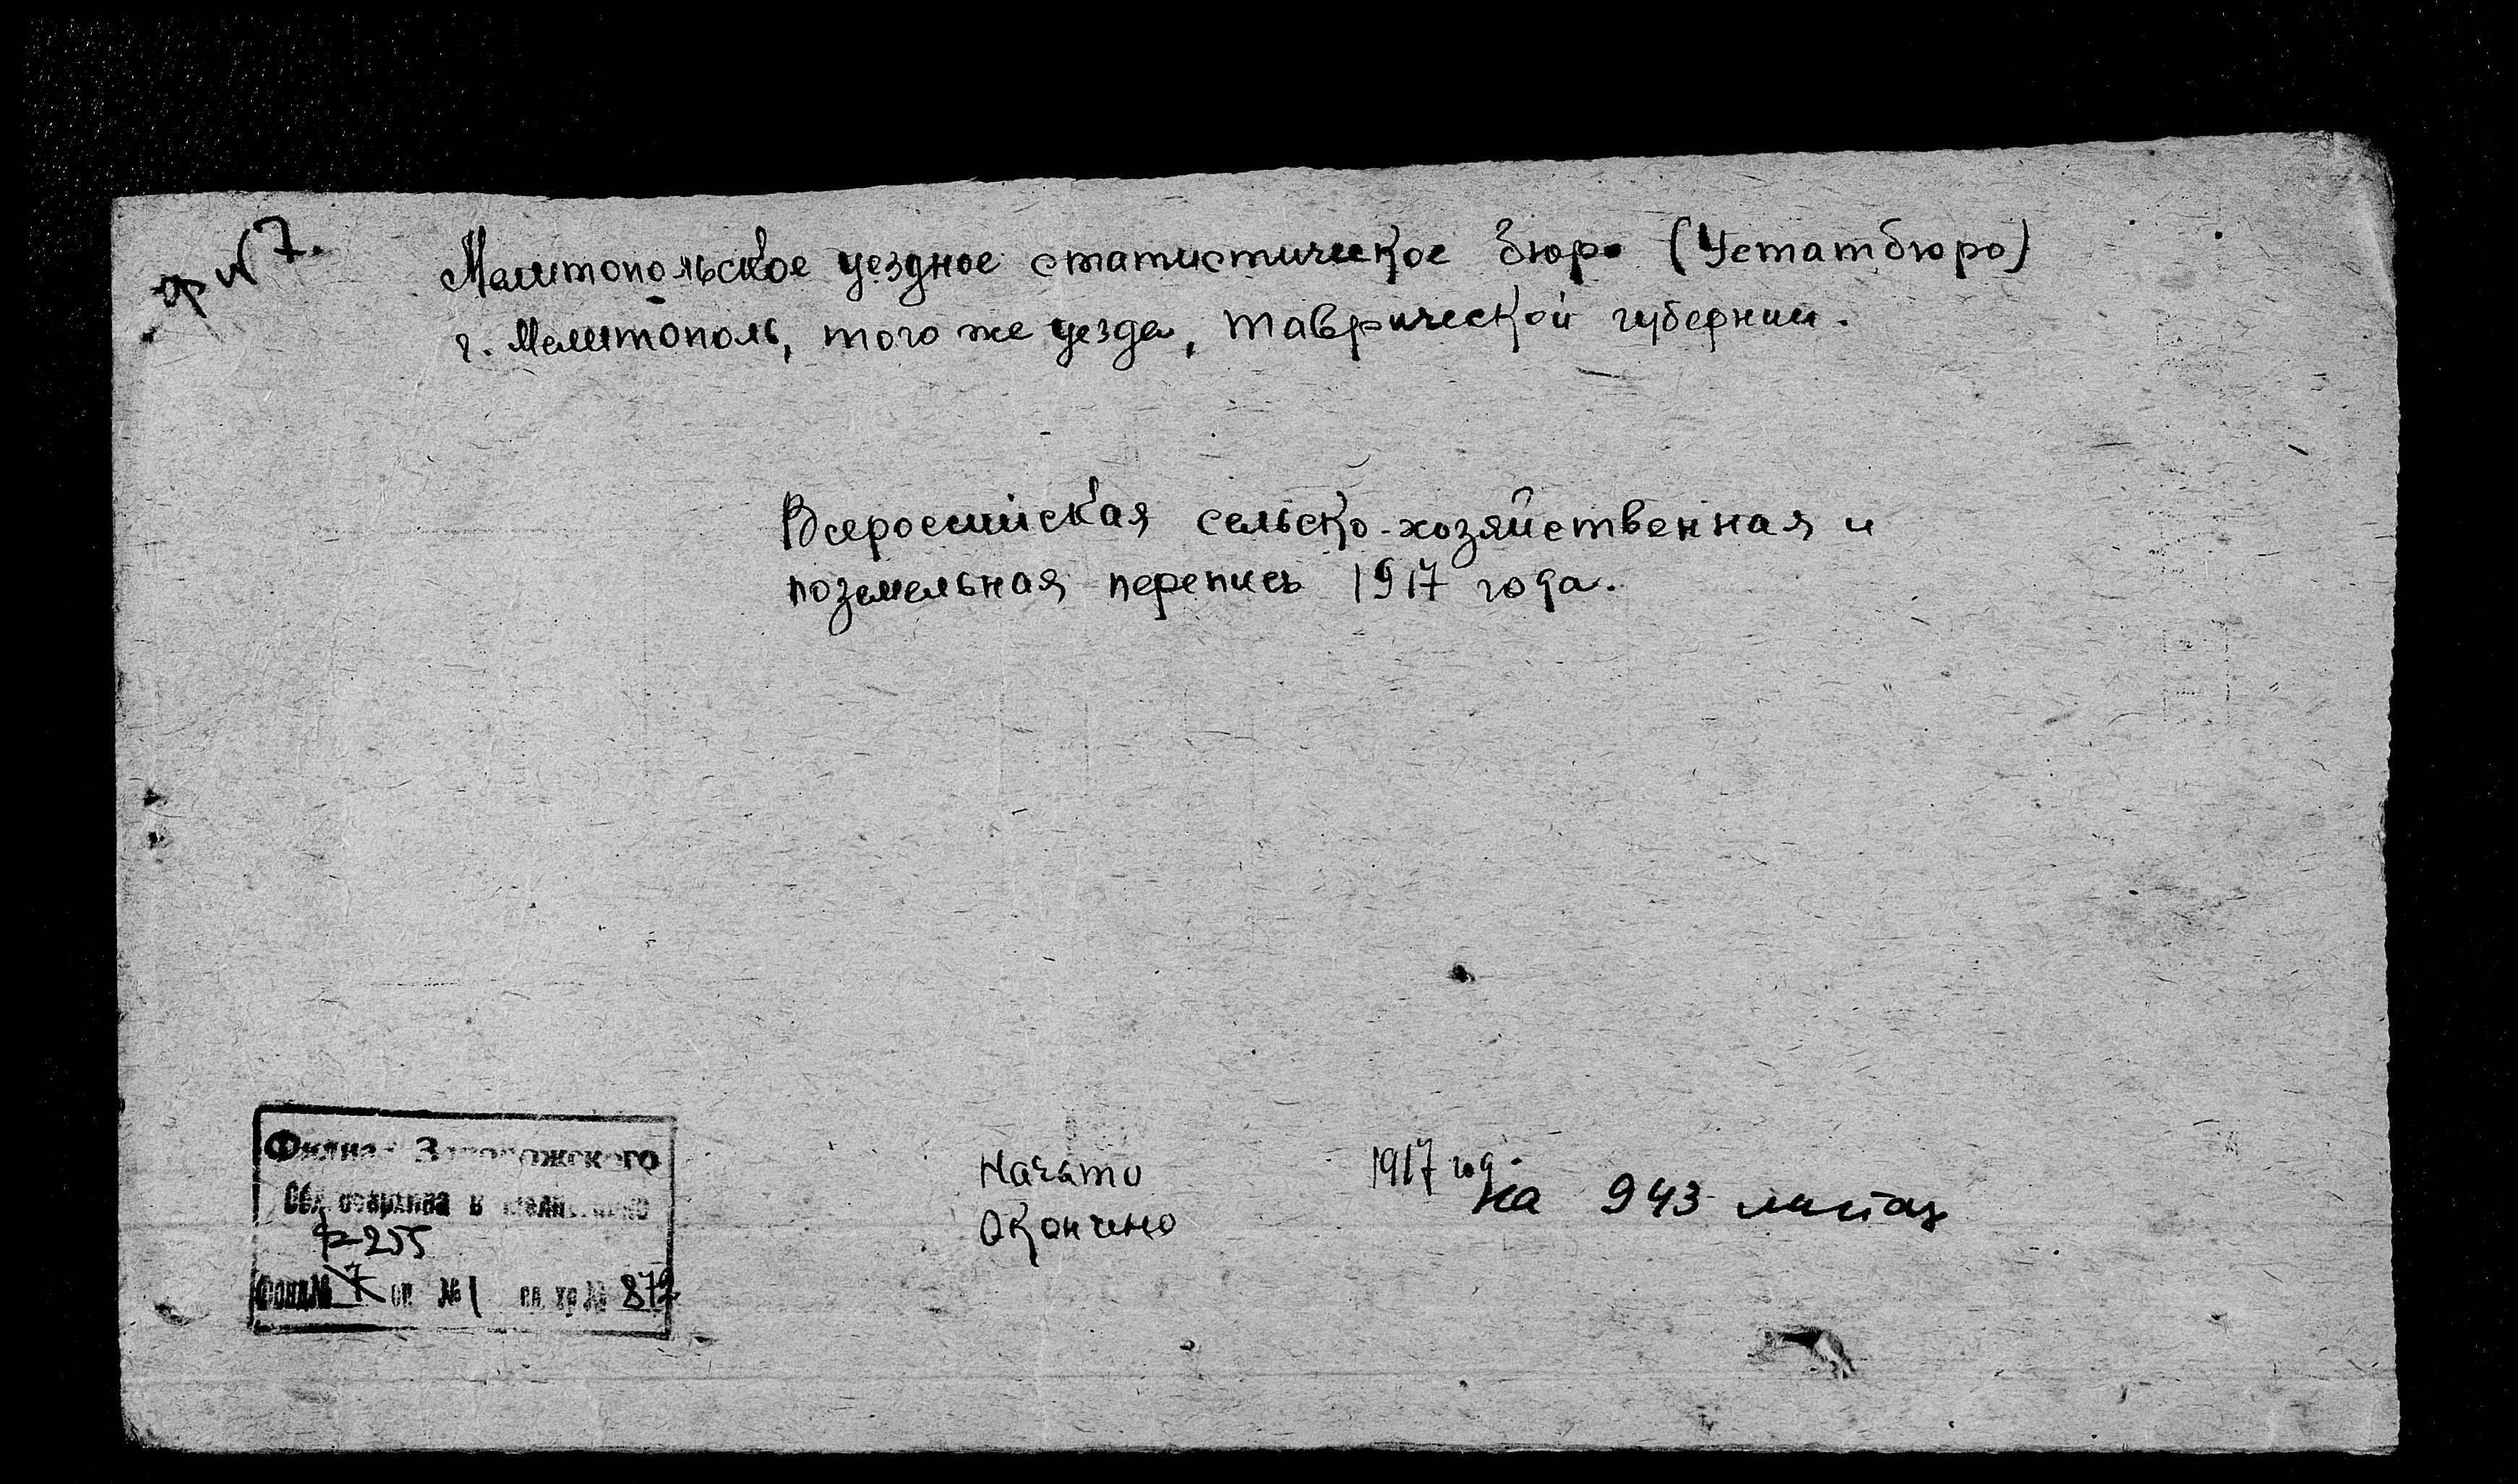 ф №7.
Мелитопольское уездное статистическое бюро (Устатбюро)
г. Мелитополь, того же уезда, Таврической губернии.
Всероссийская сельско-хозяйственная и
поземельная перепись 1917 года.
Филиал Запорожского
Облгосархива в
Р-255
Фонд № 7 оп №1 ед. хр № 872
Начато 1917 год.
Окончено
на 943 листах